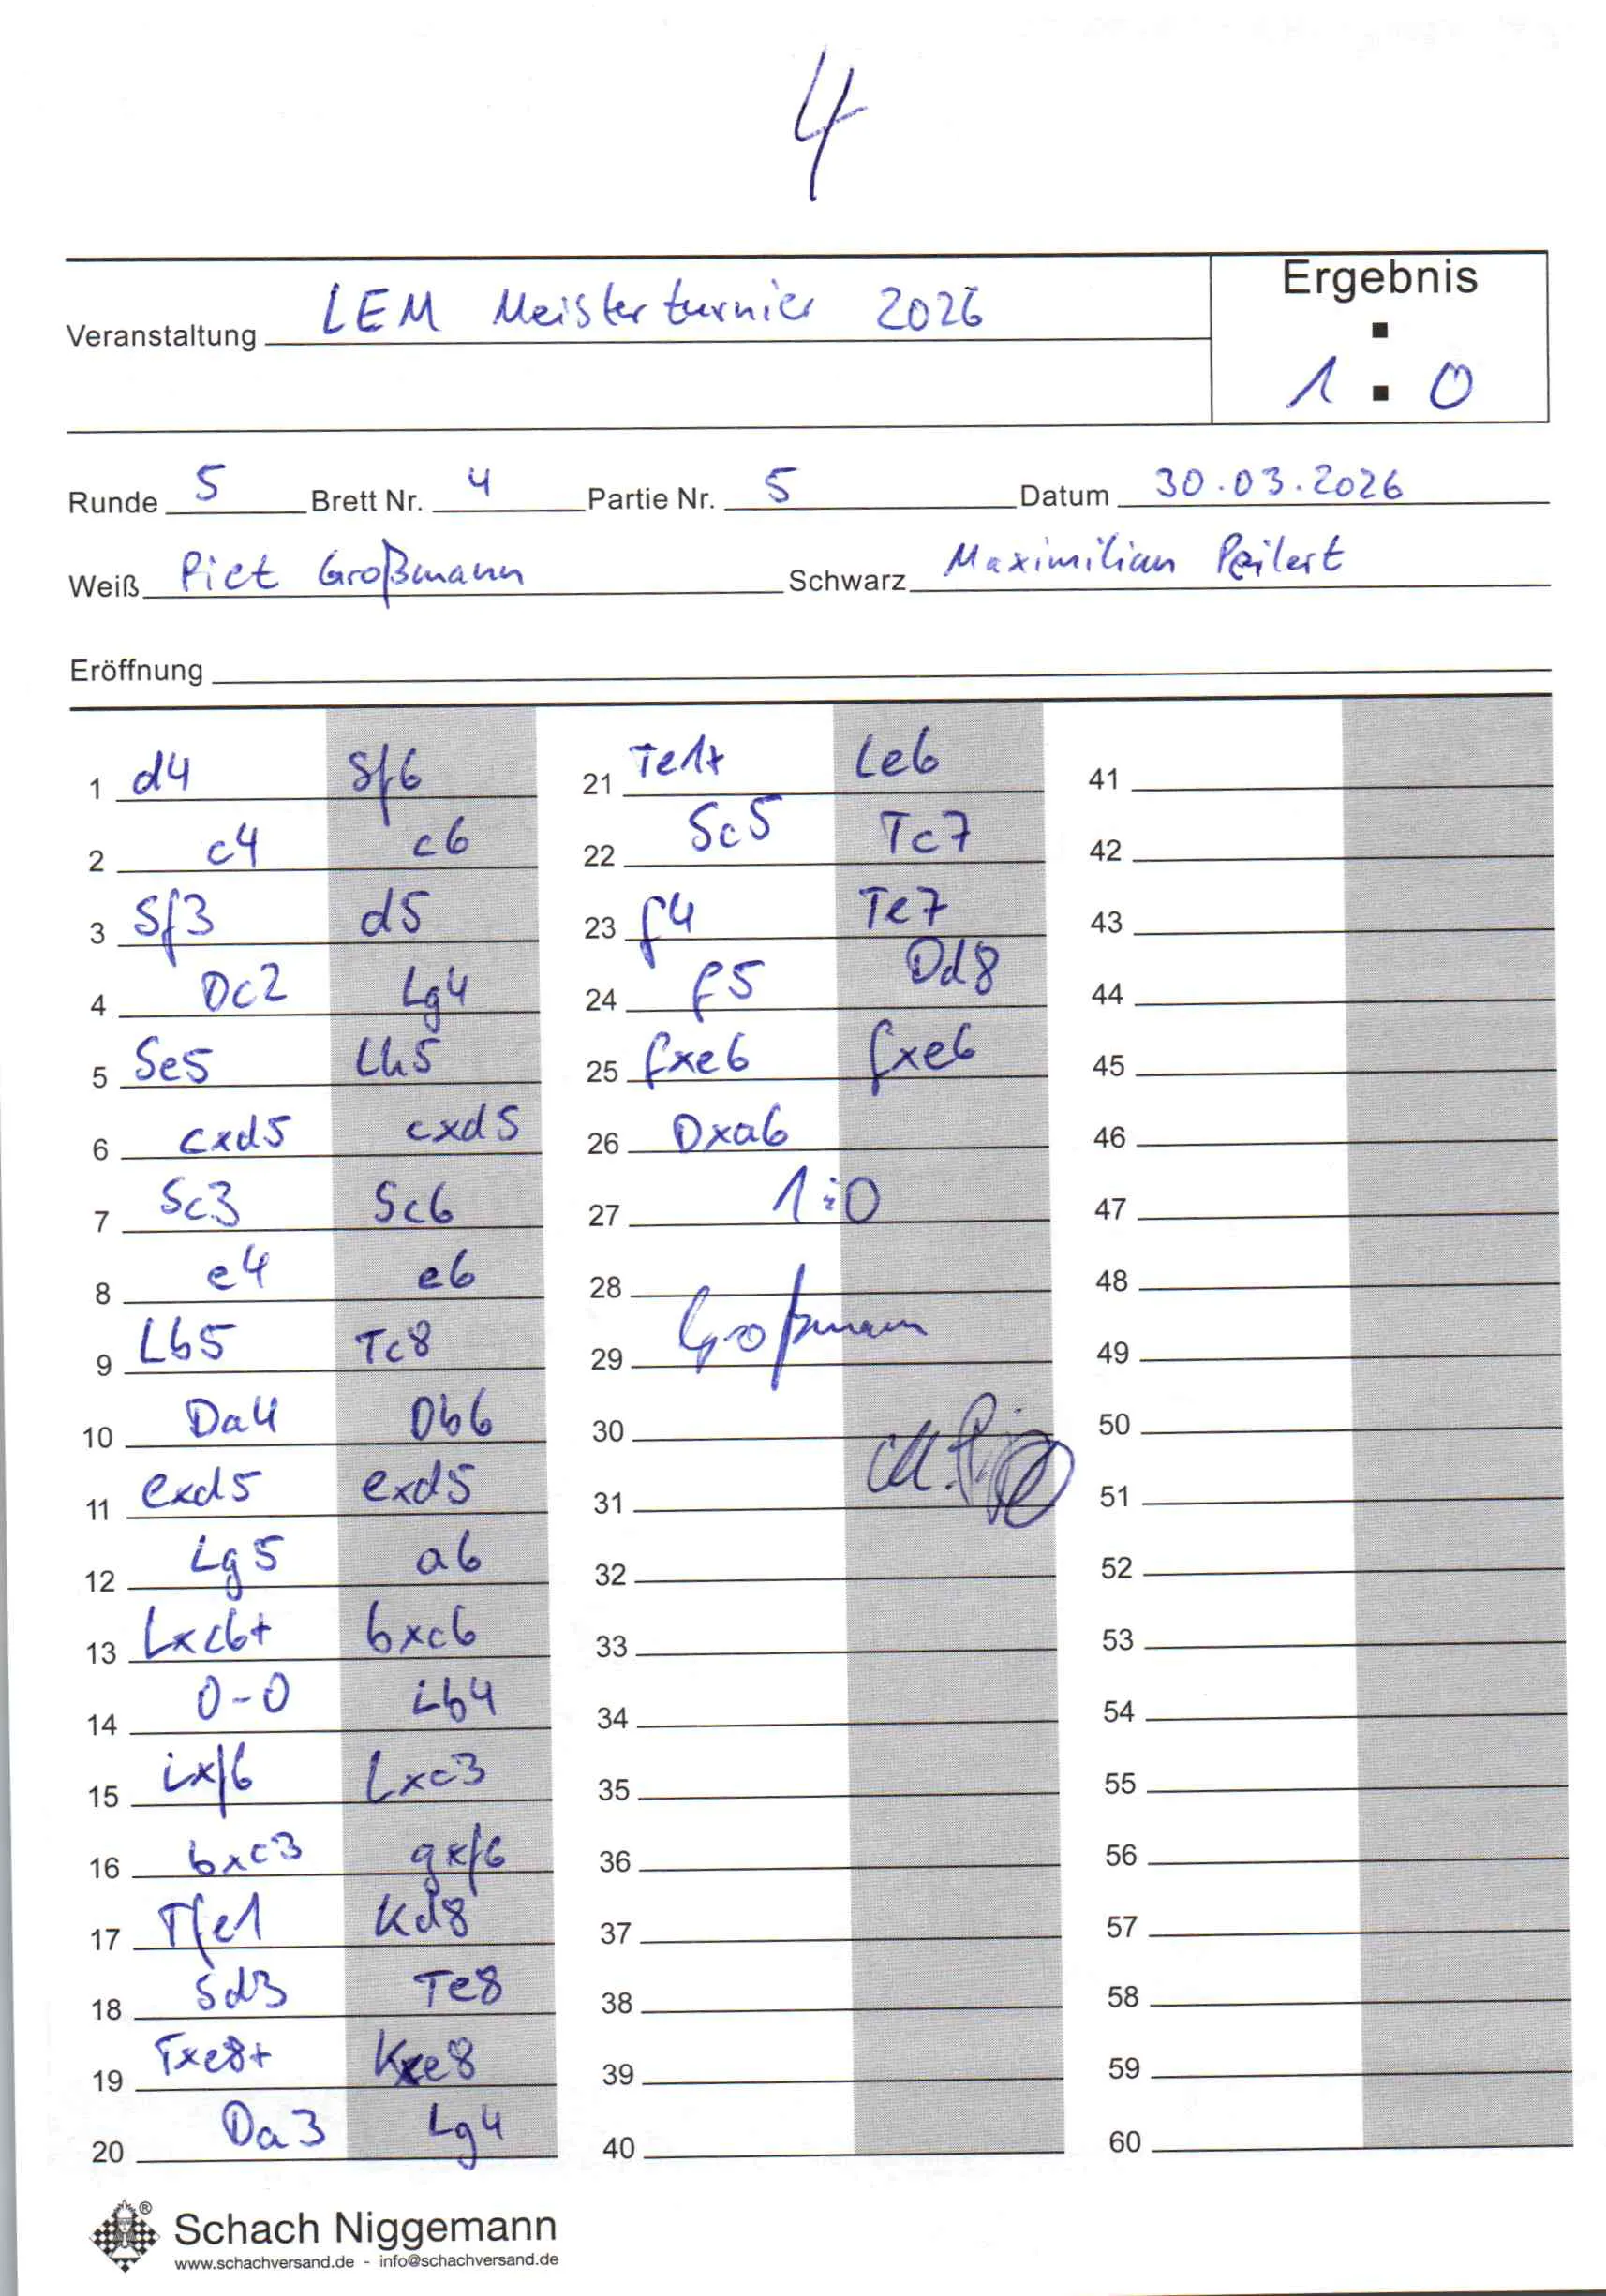 4
Ergebnis
Veranstaltung LEM Meisterturnier 2026
1 : 0
Runde 5 Brett Nr. 4 Partie Nr. 5 Datum 30.03.2026
Weiß Piet Großmann Schwarz Maximilian Peilert
Eröffnung
1 d4 Sf6
2 c4 c6
3 Sf3 d5
4 Dc2 Lg4
5 Se5 Lh5
6 cxd5 cxd5
7 Sc3 Sc6
8 e4 e6
9 Lb5 Tc8
10 Da4 Db6
11 exd5 exd5
12 Lg5 a6
13 Lxc6+ bxc6
14 0-0 Lb4
15 Lxf6 Lxc3
16 bxc3 gxf6
17 Tfe1 Kd8
18 Sd3 Te8
19 Txe8+ Kxe8
20 Da3 Lg4
21 Te1+ Le6
22 Sc5 Tc7
23 f4 Te7
24 f5 Dd8
25 fxe6 fxe6
26 Dxa6
27 1:0
28
29 Großmann
30
31
32
33
34
35
36
37
38
39
40
41
42
43
44
45
46
47
48
49
50
51
52
53
54
55
56
57
58
59
60
Schach Niggemann
www.schachversand.de - info@schachversand.de